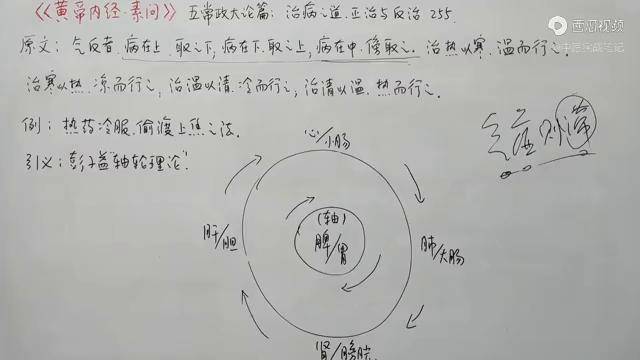 《黄帝内经·素问》 五常政大论篇：治病之道.正治与反治 255.
西瓜视频
中医实战笔记
原文：气反者.病在上.取之下；病在下.取之上；病在中.傍取之.治热以寒.温而行之.
治寒以热.凉而行之；治温以清.冷而行之；治清以温.热而行之.
例：热药冷服.偷渡上焦之法.
引义：彭子益"轴轮理论".
心/小肠
(轴)
脾/胃
肝/胆
肺/大肠
肾/膀胱